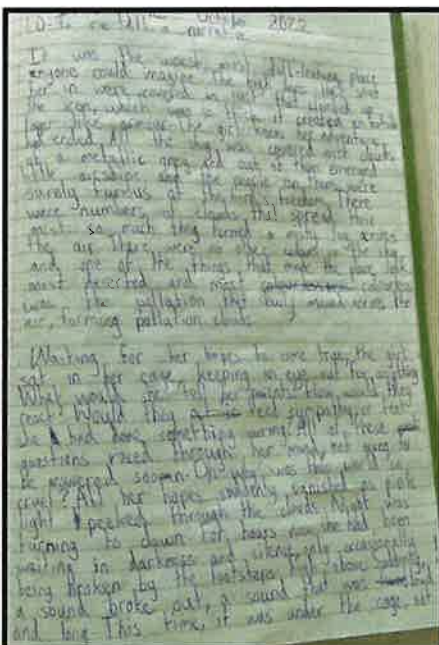 LO: To 2022
narrative
It was the worst, most dull-looking place
anyone could imagine. The bars was they shut
her in were covered in rust that
the iron, which was as if it created an
layer like armour. The girl knew her adventure
had ended. All the sky was covered mist clouds
of a metallic grey, and out of them emerged
little airships and the people on them were
surely furious at the girl's freedom. There
were numbers of clouds that spread their
mist so much they turned a misty fog across
the air. There were no other colours in the sky
and one of the things that made the place look
most deserted and most colourless
was the pollation that build mound across the
air, forming pollation clouds.
Waiting for her hopes to come true, the girl
sat in her cage, keeping an eye out for anything.
What would she tell her parents? How would they
react? Would they feel sympathy or fear?
She had done something daring. All of these
questions raced through her mind, not going to
be answered soon. Oh why was this world so
cruel? All her hopes suddenly vanished as pink
light peeked through the clouds. Night was
turning to dawn. For hours now, she had been
waiting in darkness and silence, only occasionally
being broken by the footsteps high above. Suddenly,
a sound broke out, a sound that was loud
and long. This time, it was under the cage, not